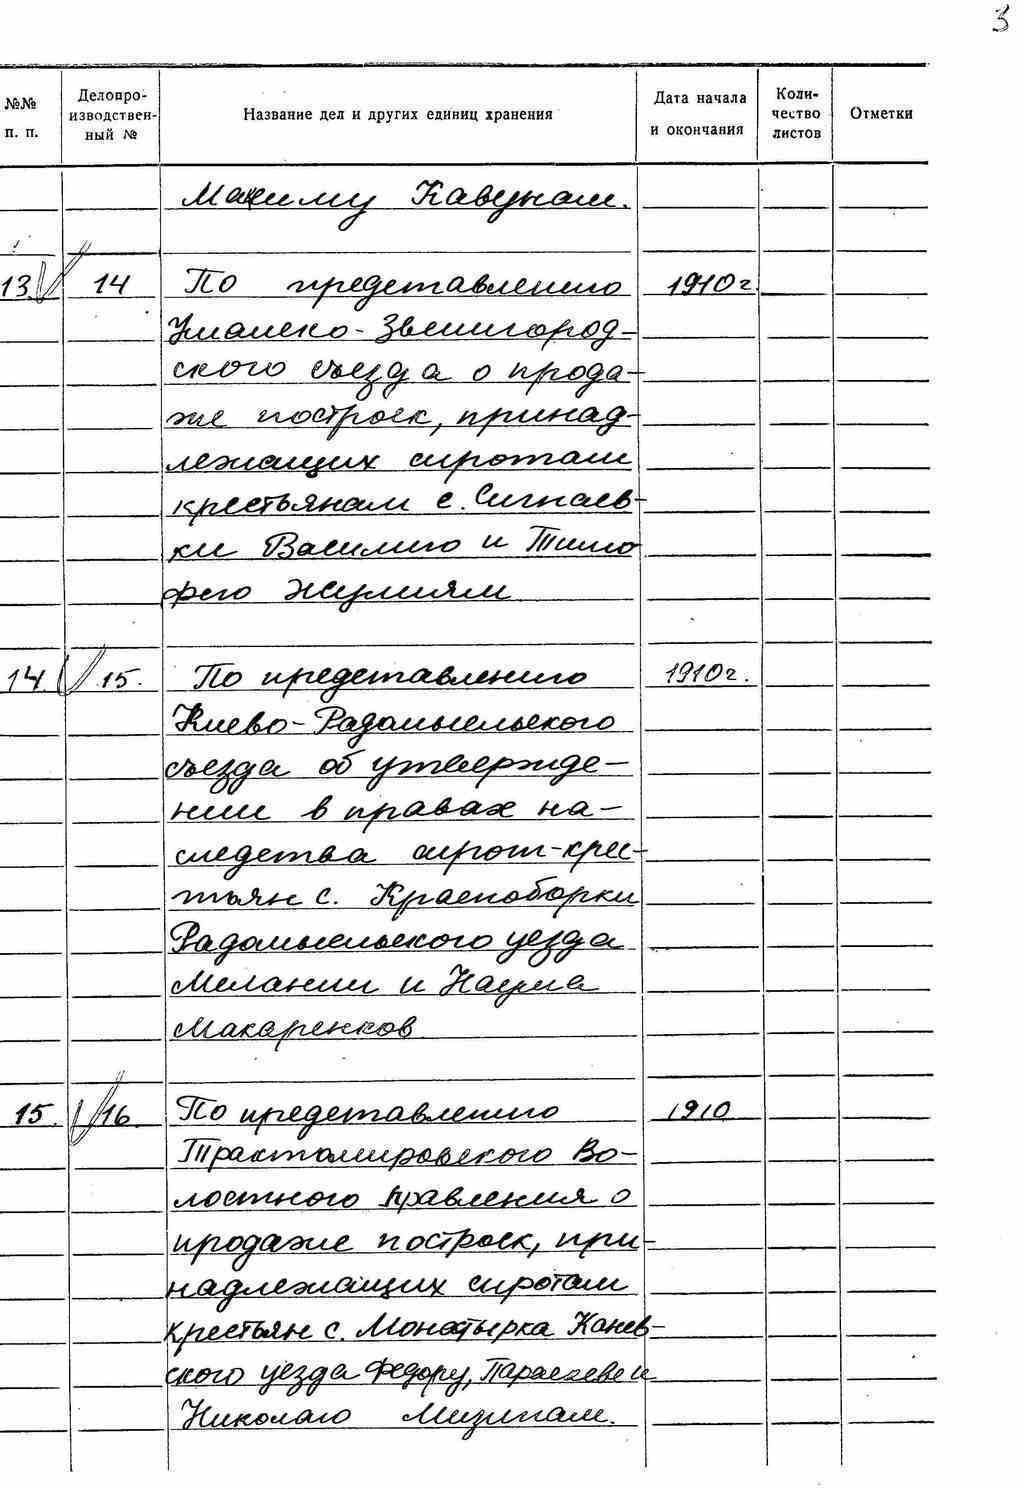 3
№№ п. п. Делопро-изводствен-ный № Название дел и других единиц хранения Дата начала и окончания Коли-чество листов Отметки
Максиму Кавунам.
13. 14 По представлению 1910 г.
Уманско-Звенигород-
ского съезда о прода-
же построек, принад-
лежащих сиротам
крестьянам с. Сигнаев-
ки Василию и Тимо
фею Жулиям
14. 15. По представлению 1910 г.
Киево-Радомысльского
съезда об утвержде-
нии в правах на-
следства сирот-крес-
тьян с. Красноборки
Радомысльского уезда
Мелании и Наума
Макаренков
15. 16. По представлению 1910
Трактомировского Во-
лостного правления о
продаже построек, при-
надлежащих сиротам
крестьян с. Монатырка Канев-
ского уезда Федору, Параскеве и
Николаю